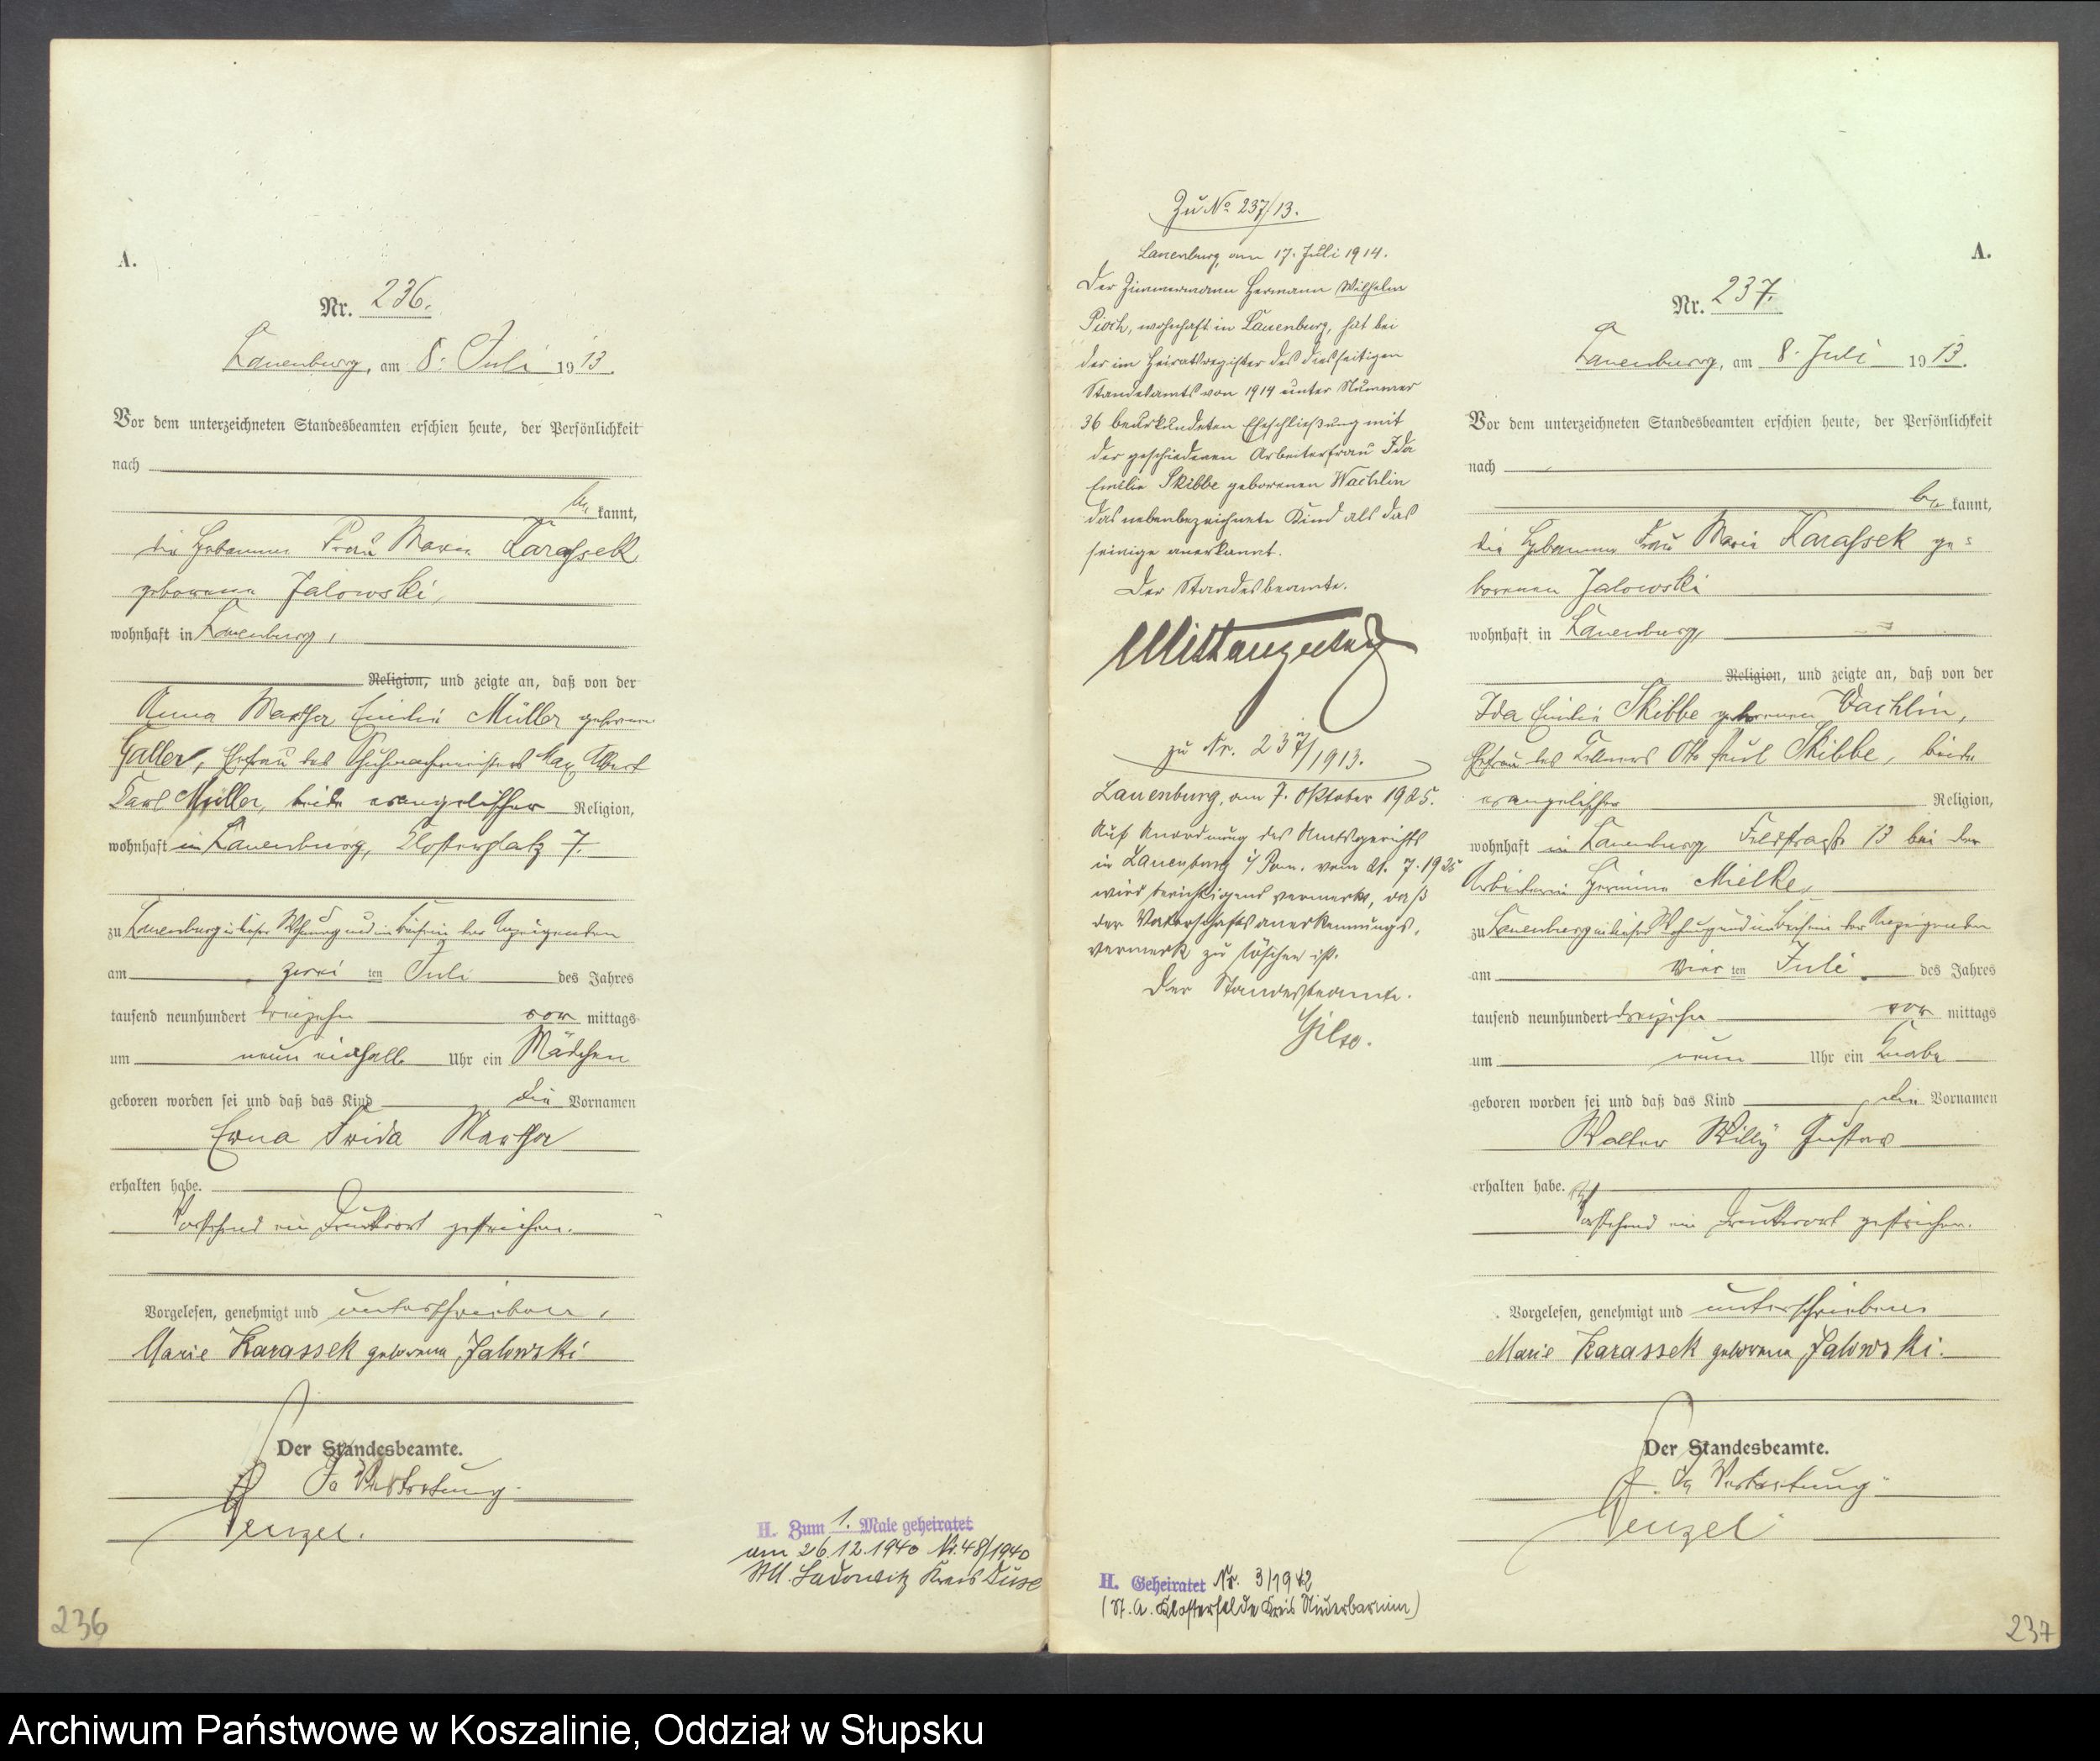 A.
Nr. 236.
Lauenburg, am 8. Juli 1913.
Vor dem unterzeichneten Standesbeamten erschien heute, der Persönlichkeit
nach
be kannt,
die Hebamme Frau Marie Karassek
geborene Jalowski,
wohnhaft in Lauenburg,
Religion, und zeigte an, daß von der
Anna Martha Emilie Müller geborenen
Galler, Ehefrau des Schuhmachermeisters Max Albert
Karl Müller, beide evangelischer Religion,
wohnhaft in Lauenburg, Klosterplatz 7.
zu Lauenburg in dieser Wohnung und im Beisein der Anzeigenden
am zwei ten Juli des Jahres
tausend neunhundert dreizehn vor mittags
um neun einhalb Uhr ein Mädchen
geboren worden sei und daß das Kind die Vornamen
Erna Frida Martha
erhalten habe.
Vorstehend ein Druckwort gestrichen.
Vorgelesen, genehmigt und unterschrieben.
Marie Karassek geborene Jalowski
Der Standesbeamte.
In Vertretung.
Wenzel.
II. Zum 1. Male geheiratet
am 26.12.1940 Nr. 48/1940
Kreis
236
Zu No 237/13.
Lauenburg, am 17. Juli 1914.
Der Zimmermann Hermann Wilhelm
Pioch, wohnhaft in Lauenburg, hat bei
der im Heiratsregister des diesseitigen
Standesamts von 1914 unter Nummer
36 beurkundeten Eheschließung mit
der geschiedenen Arbeiterfrau Ida
Emilie Skibbe geborenen Wachlin
das nebenbezeichnete Kind als das
seinige anerkannt.
Der Standesbeamte.
zu Nr. 237/1913.
Lauenburg, am 7. Oktober 1925.
Auf Anordnung des Amtsgerichts
in Lauenburg i/Pom. vom 21. 7. 1925
wird berichtigend vermerkt, daß
der Vaterschaftsanerkennungs-
vermerk zu löschen ist.
Der Standesbeamte.
II. Geheiratet Nr. 3/1942
(St. A. Klosterfelde Kreis Niederbarnim)
A.
Nr. 237.
Lauenburg, am 8. Juli 1913.
Vor dem unterzeichneten Standesbeamten erschien heute, der Persönlichkeit
nach
be kannt,
die Hebamme Frau Marie Karassek ge=
borenen Jalowski
wohnhaft in Lauenburg,
Religion, und zeigte an, daß von der
Ida Emilie Skibbe geborenen Wachlin,
Ehefrau des Kellners Otto Paul Skibbe, beide
evangelischer Religion,
wohnhaft in Lauenburg Feldstraße 13 bei der
Arbeiterin Hermine Mielke,
zu Lauenburg in dieser Wohnung und im Beisein der Anzeigenden
am vier ten Juli des Jahres
tausend neunhundert dreizehn vor mittags
um neun Uhr ein Knabe
geboren worden sei und daß das Kind die Vornamen
Walter Willy Gustav
erhalten habe.
Vorstehend ein Druckwort gestrichen.
Vorgelesen, genehmigt und unterschrieben
Marie Karassek geborene Jalowski.
Der Standesbeamte.
In Vertretung.
Wenzel
237
Archiwum Państwowe w Koszalinie, Oddział w Słupsku